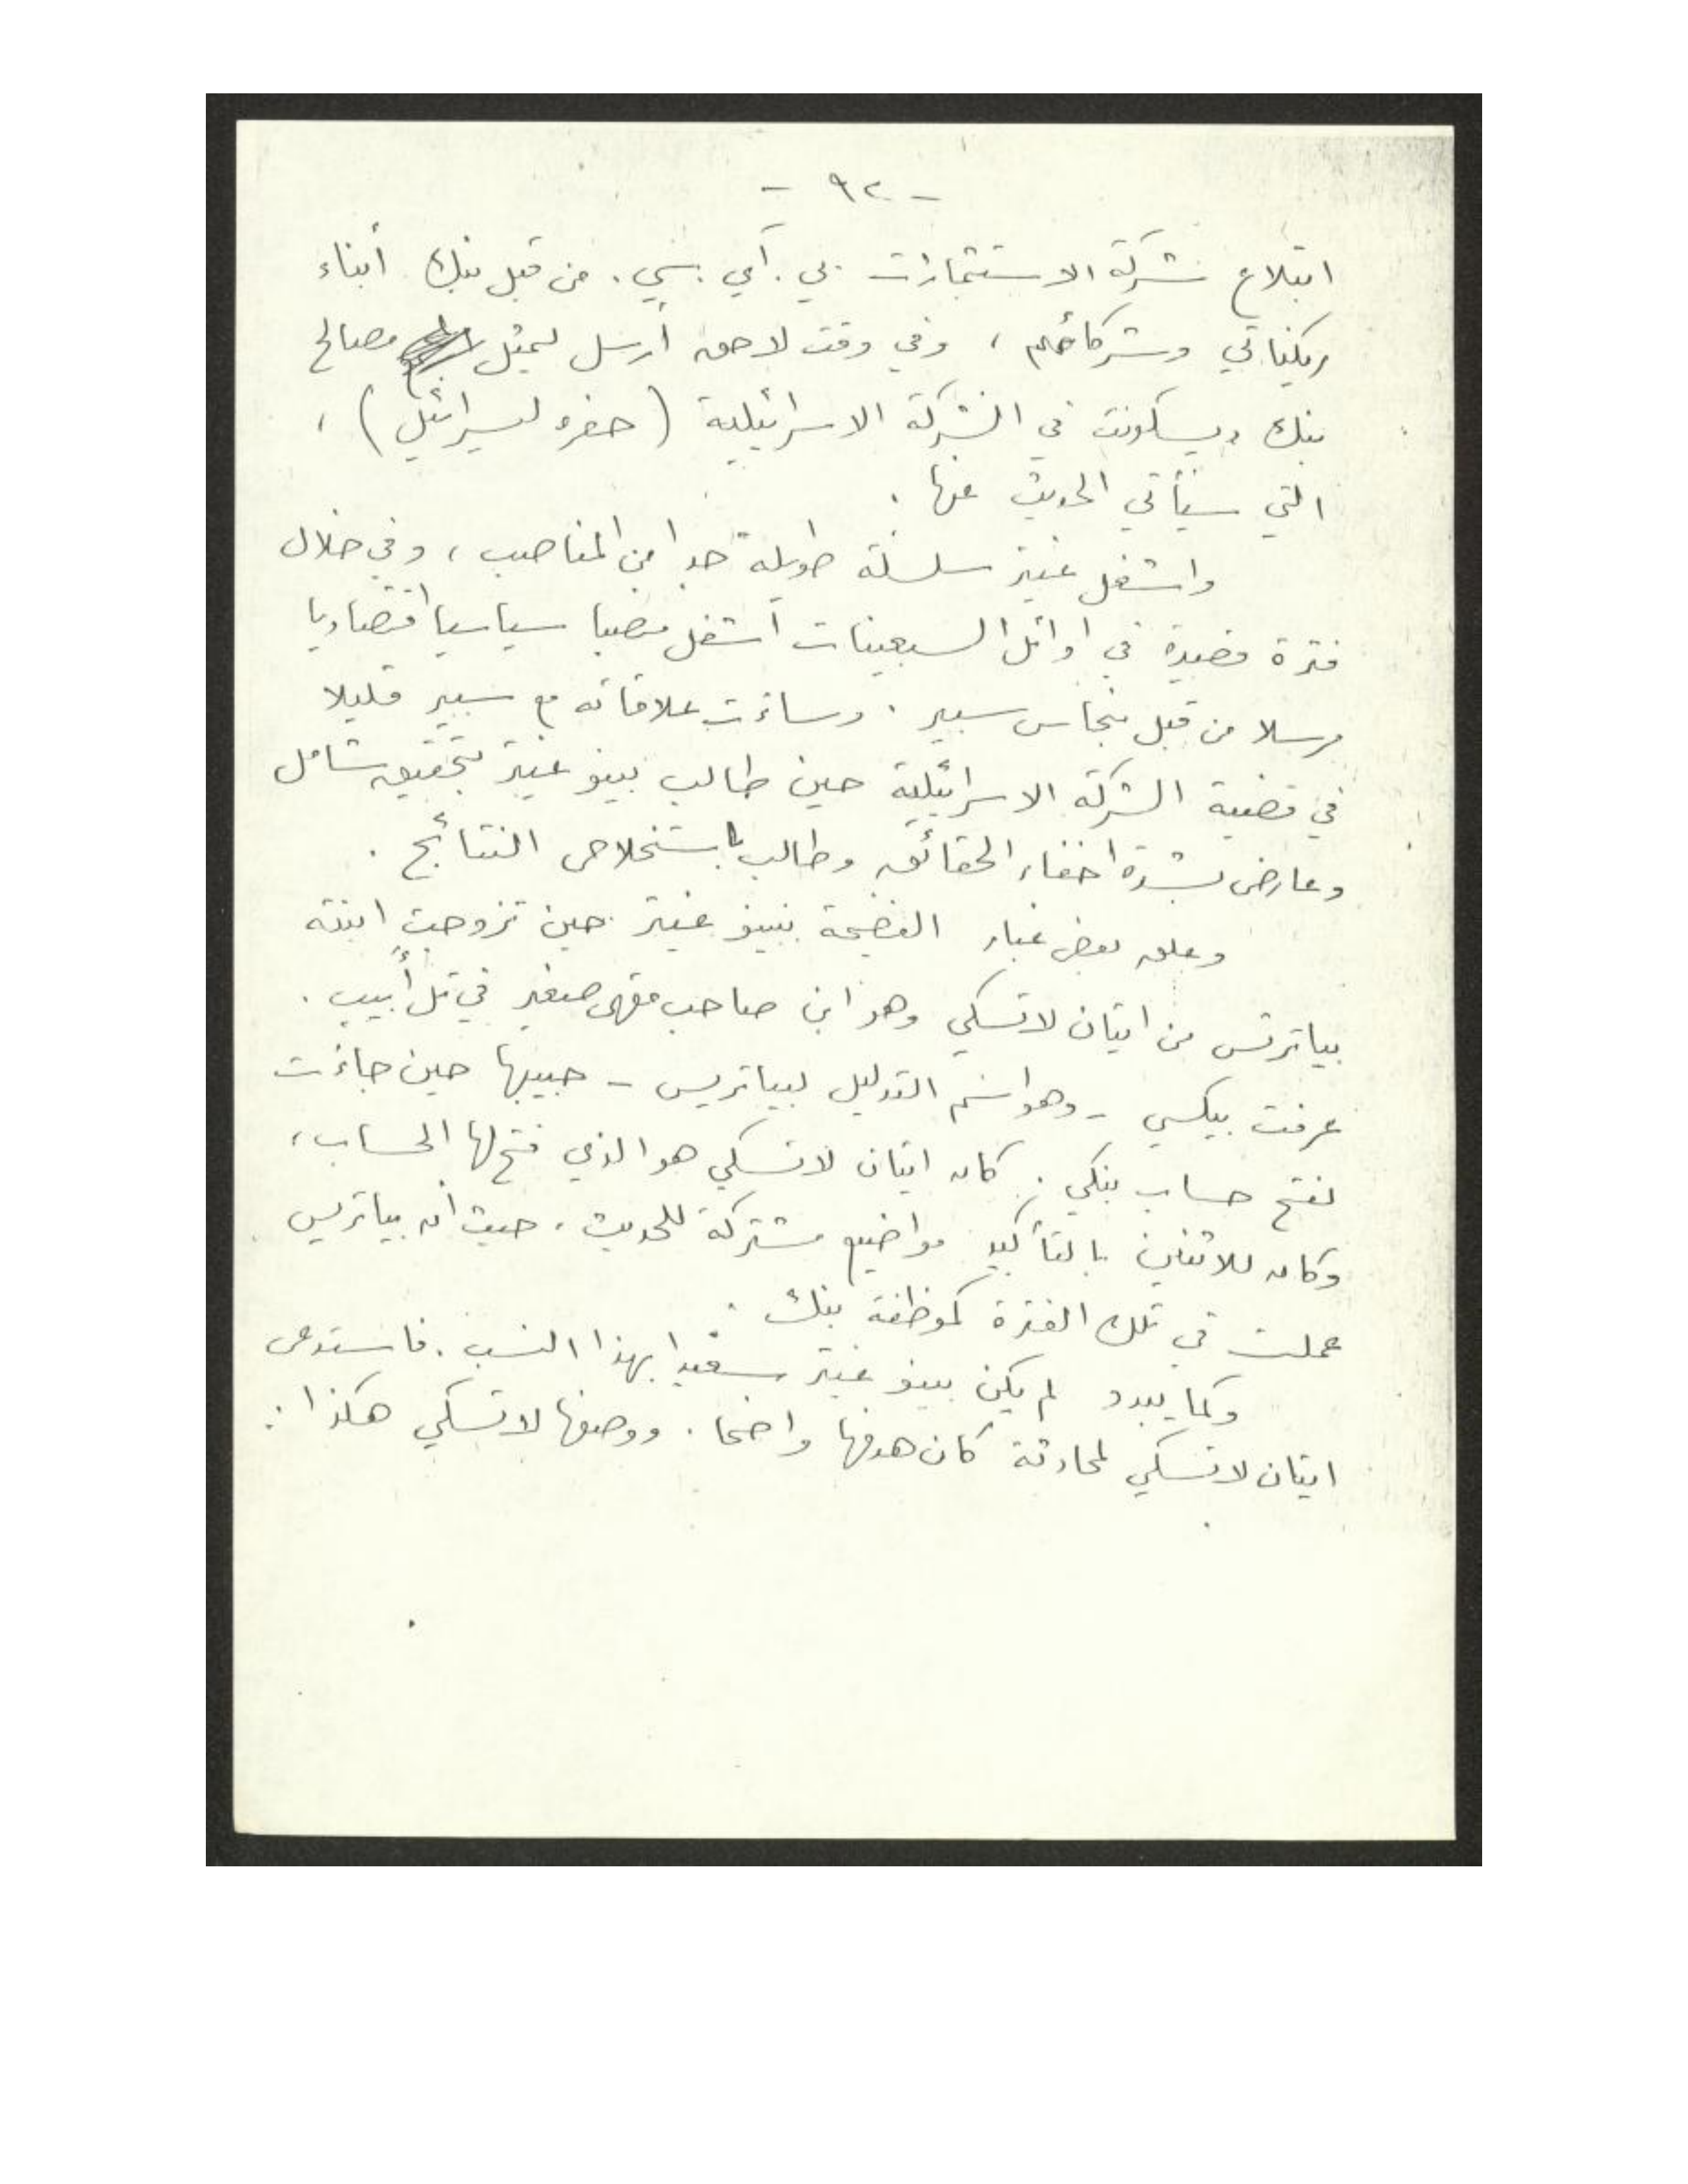 - ٩٢ -
ابتلاع شركة الاستثمارات بي. آي. سي. من قبل بنك أبناء
ريكناتي وشركائهم ، وفي وقت لاحق أرسل ليمثل مصالح
بنك ديسكونت في الشركة الاسرائيلية (حفره ليسرائيل) ،
التي سيأتي الحديث عنها .
واشغل غيتر سلسلة طويلة جدا من المناصب ، وفي خلال
فترة قصيرة في اوائل السبعينات أشغل منصبا سياسيا اقتصاديا
مرسلا من قبل بنحاس سبير . وساءت علاقاته مع سبير قليلا
في قضية الشركة الاسرائيلية حين طالب بينو غيتر بتحقيق شامل
وعارض بشدة اخفاء الحقائق وطالب باستخلاص النتائج .
وعلق بعض غبار الفضيحة ببينو غيتر حين تزوجت ابنته
بياترتس من ايتان لاتسكي وهو ابن صاحب مقهى صغير في تل أبيب .
عرفت بيكسي - وهو اسم التدليل لبياتريس - حبيبها حين جاءت
لفتح حساب بنكي . كان ايتان لاتسكي هو الذي فتح لها الحساب ،
وكان للاثنين بالتأكيد مواضيع مشتركة للحديث ، حيث ان بياتريس
عملت في تلك الفترة كموظفة بنك .
وكما يبدو لم يكن بينو غيتر سعيدا بهذا النسب . فاستدعى
ايتان لاتسكي لمحادثة كان هدفها واضحا . ووصفها لاتسكي هكذا :